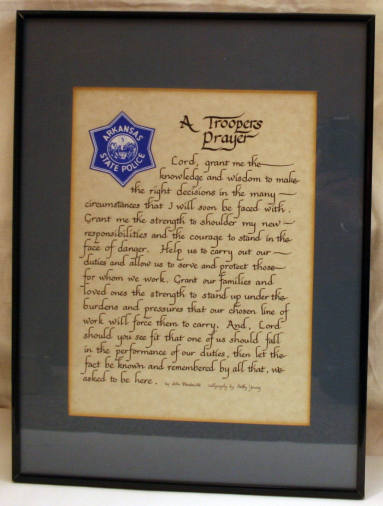 ARKANSAS
STATE POLICE
A Troopers
Prayer
Lord, grant me the
knowledge and wisdom to make
the right decisions in the many
circumstances that I will soon be faced with.
Grant me the strength to shoulder my new
responsibilities and the courage to stand in the
face of danger. Help us to carry out our
duties and allow us to serve and protect those
for whom we work. Grant our families and
loved ones the strength to stand up under the
burdens and pressures that our chosen line of
work will force them to carry. And, Lord
should you see fit that one of us should fall
in the performance of our duties, then let the
fact be known and remembered by all that, we
asked to be here. by John calligraphy by